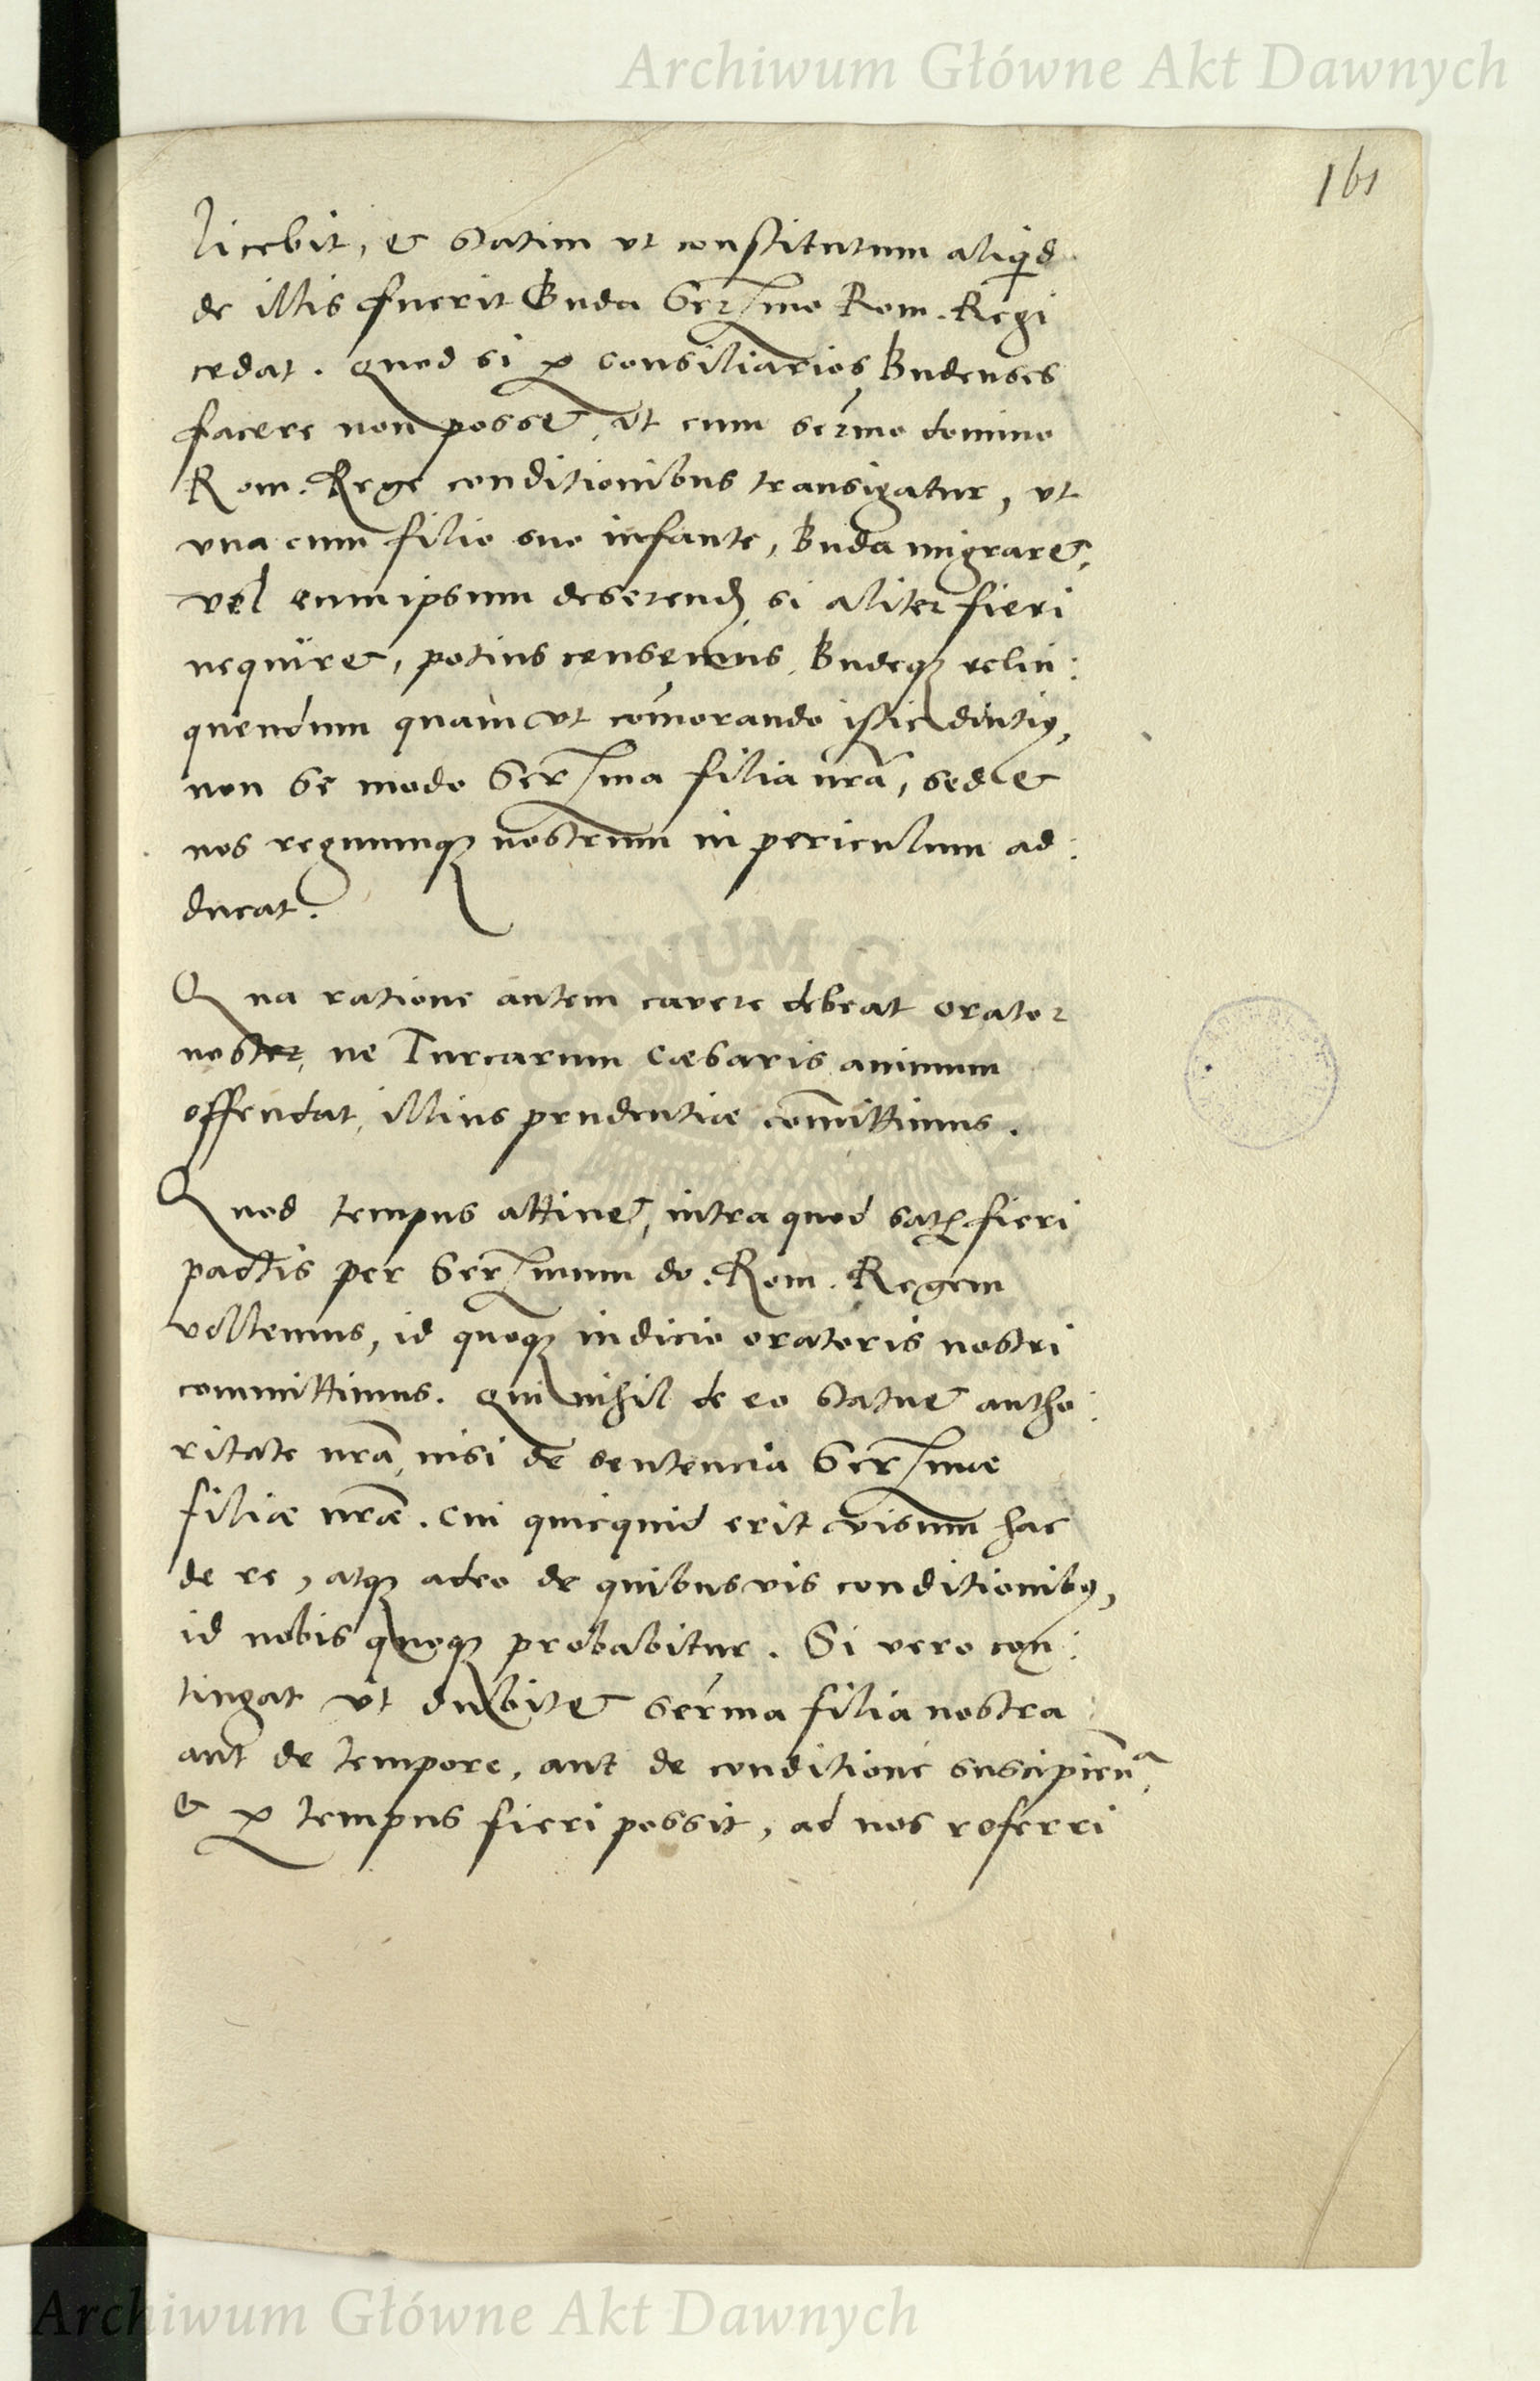 Archiwum Główne Akt Dawnych
161
licebit, et statim vt constitutum aliqid
de illis fuerit Buda Sermo Rom. Regi
cedat. Quod si p consiliarios Budenses
facere non posset, vt cum sermo domino
Rom. Rege conditionibus transigatur, vt
vna cum filio suo infante, Buda migraret,
vel eum ipsum deserend si aliter fieri
nequiret, potius censemus, Budeq relin:
quendum quam vt comorando istic diutiq,
non se modo Serma filia nra, sed et
nos regnumq nostrum in periculum ad:
ducat.
Qua ratione autem cavere debeat orator
noster, ne Turcarum Cæsaris animum
offendat, illius prudentiæ comittimus.
Quod tempus attinet, intra quod satis fieri
pactis per Sermum do. Rom. Regem
vellemus, id quoq iudicio oratoris nostri
committimus. Qui nihil de eo statuet autho:
ritate nra, nisi de sententia Sermæ
filiæ nræ. Cui quicquid erit visum hac
de re, atq adeo de quibusvis conditionibq,
id nobis quoq probabitur. Si vero con:
tingat vt dubitet serma filia nostra
aut de tempore, aut de conditione suscipienª,
et p tempus fieri possit, ad nos referri
Archiwum Główne Akt Dawnych